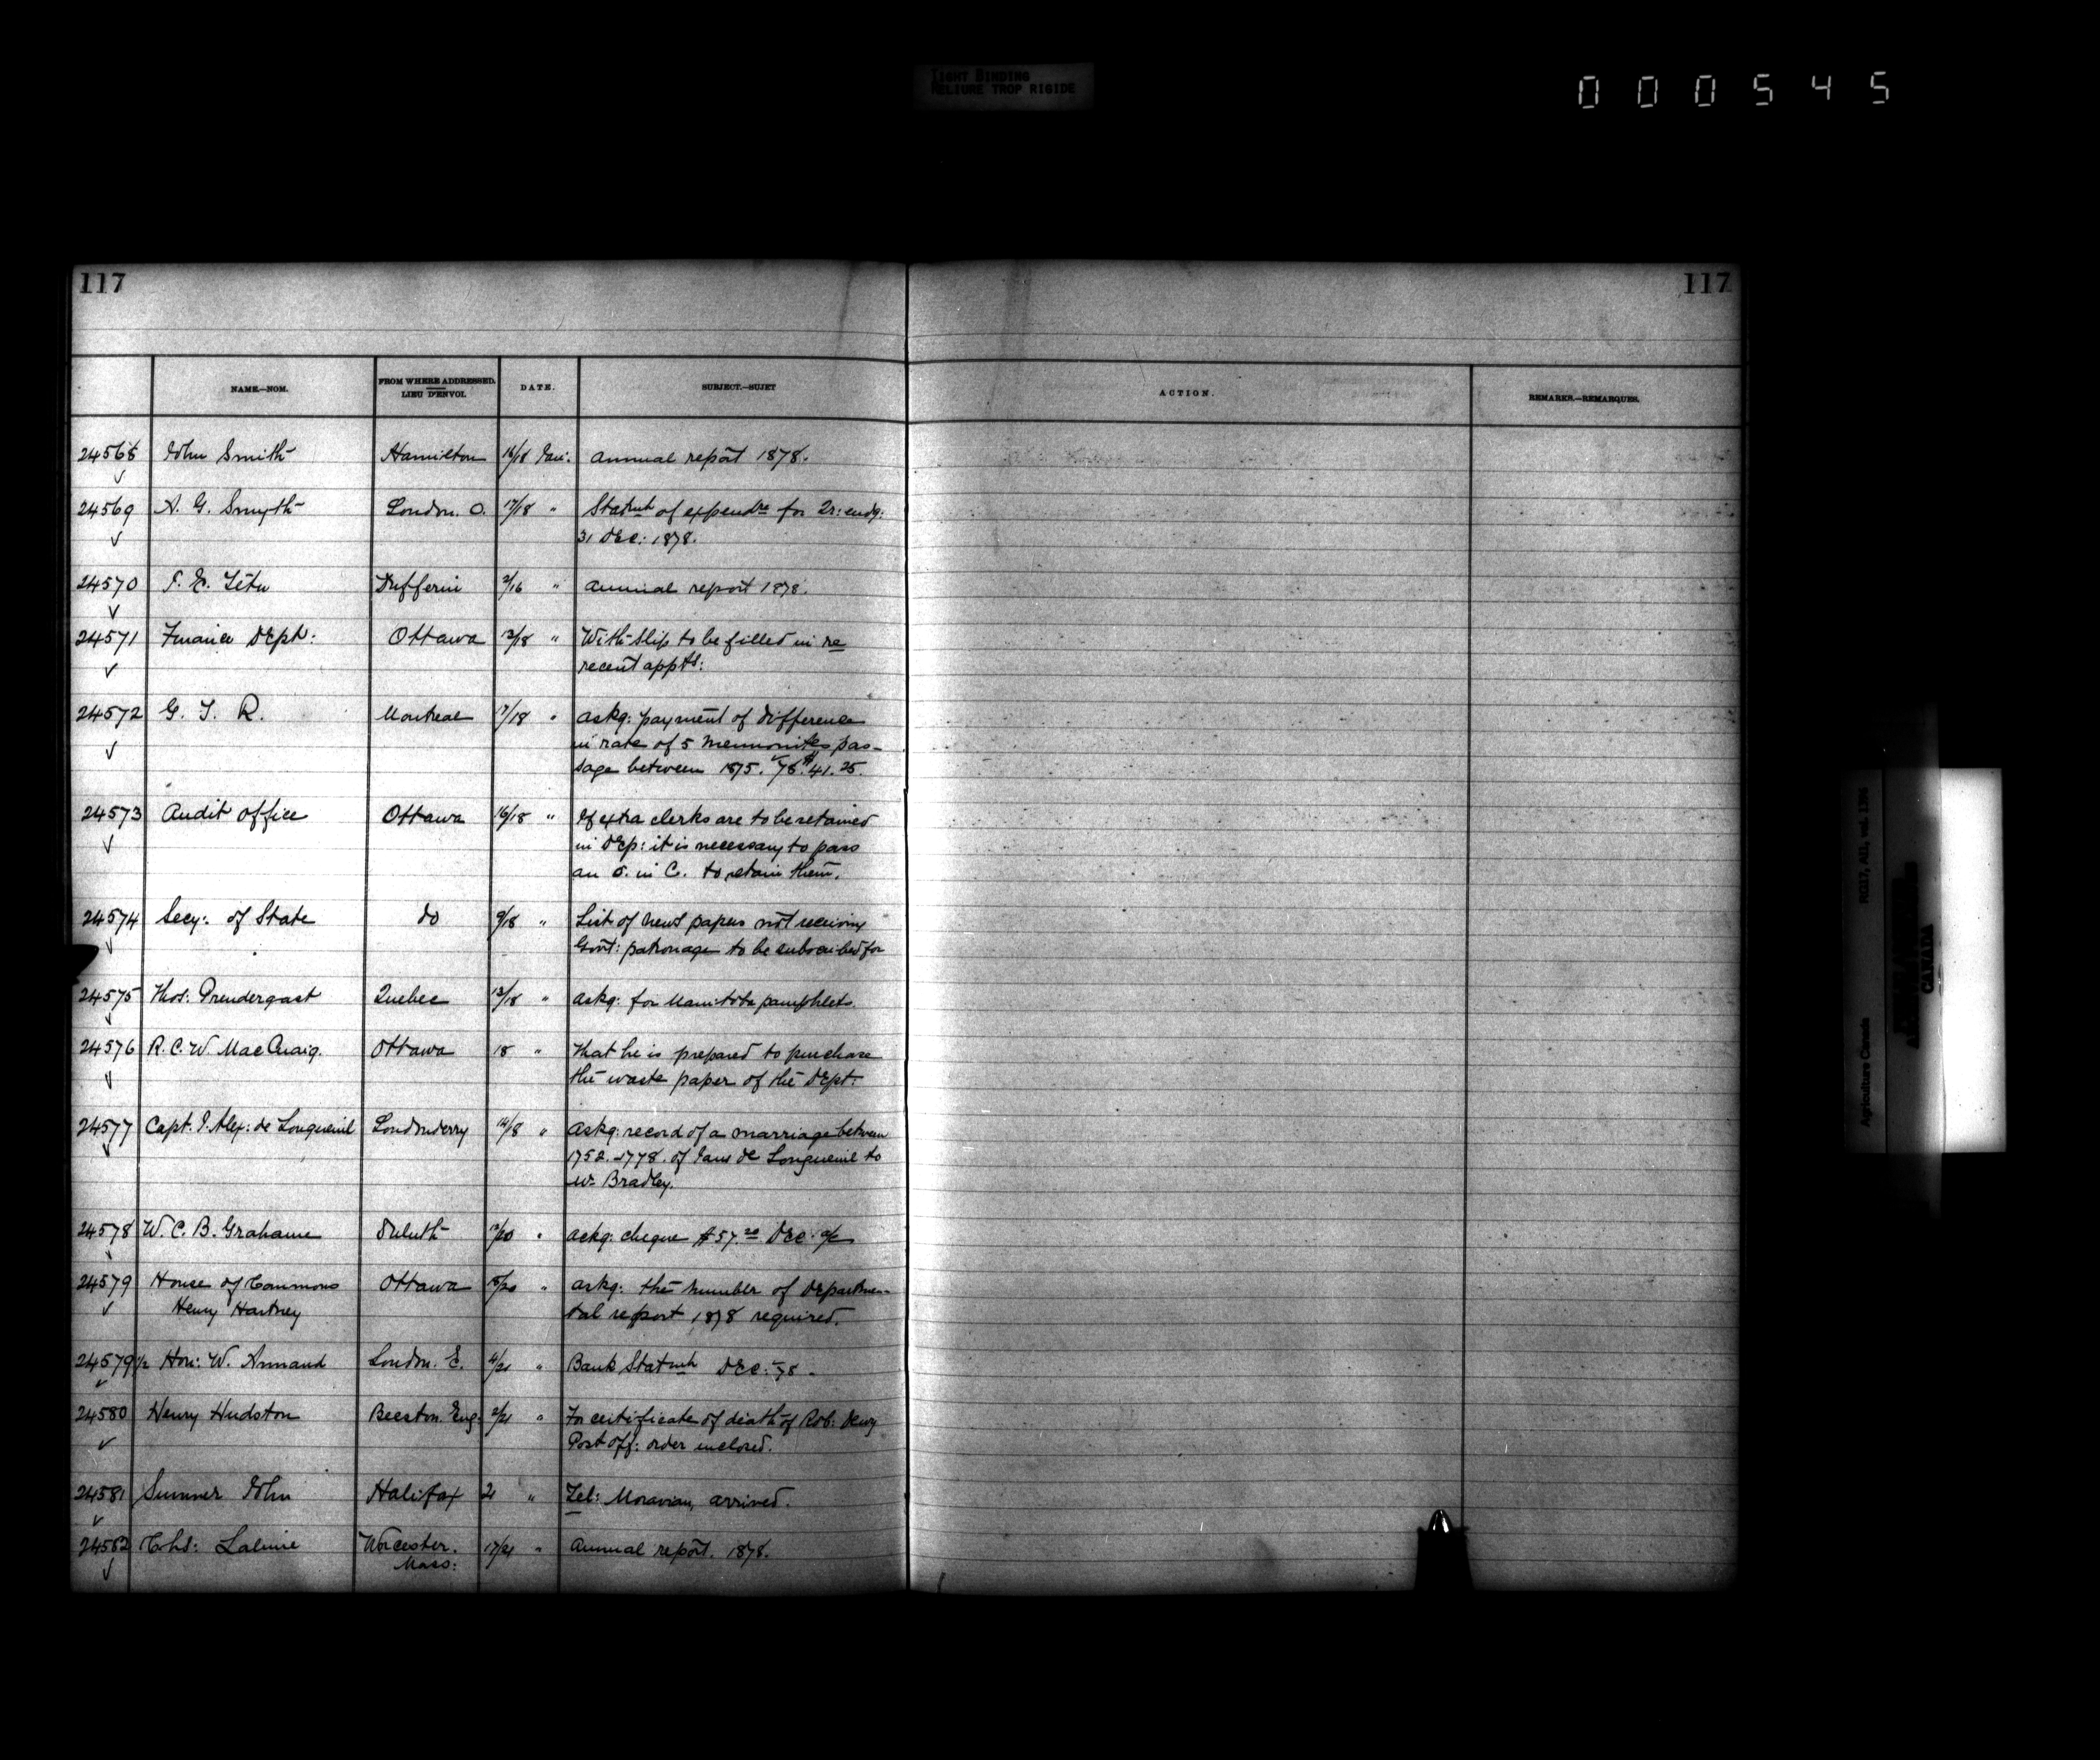 TIGHT BINDING
RELIURE TROP RIGIDE
000545
117 117
NAME.—NOM. FROM WHERE ADDRESSED. LIEU D'ENVOI. DATE. SUBJECT.—SUJET ACTION. REMARKS.—REMARQUES.
24568 John Smith Hamilton 16/18 Jan: Annual report 1878.
24569 A. G. Smyth London. O. 17/18 " Statmt of expendre for Qr: endg:
31 Dec: 1878.
24570 J. E. Tétu Dufferin 2/16 " Annual report 1878.
24571 Finance Dept: Ottawa 13/18 " With slip to be filled in re
recent appts:
24572 G. T. R. Montreal 17/18 " Askg: payment of difference
in rate of 5 Mennonites pas-
sage between 1875. & 78. $41.25.
24573 Audit Office Ottawa 16/18 " If extra clerks are to be retained
in Dep: it is necessary to pass
an O. in C. to retain them.
24574 Secy: of State do 9/18 " List of news papers not receiving
Govt: patronage to be subscribed for
24575 Thos: Prendergast Quebec 13/18 " Askg: for Manitoba pamphlets.
24576 R. C. W. MacCuaig. Ottawa 18 " That he is prepared to purchase
the waste paper of the Dept:
24577 Capt. J. Alex: de Longueuil Londonderry 14/8 " Askg: record of a marriage between
1752-1778. of Jane de Longueuil to
Wm Bradley.
24578 W. C. B. Grahame Duluth /20 " Askg: cheque $57.20 Dec: a/c
24579 House of Commons Ottawa 18/20 " Askg: the number of Departmen-
Henry Hartney tal report 1878 required.
24579 1/2 Hon: W. Annand London. E. 4/21 " Bank Statmt Dec: 78.
24580 Henry Hudston Beeston. Eng: 2/21 " For certificate of death of Rob:
Post off: order inclosed.
24581 Sumner John Halifax 21 " Tel: Moravian, arrived.
24582 Chs: Lalime Worcester. 17/21 " Annual report. 1878.
Mass:
Agriculture Canada RG17, AII, vol. 1396
CANADA